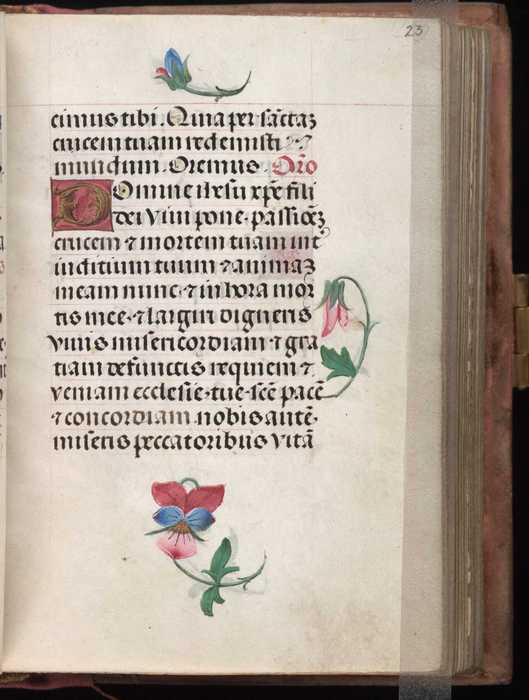 23
cimus tibi. Quia per sāctaȝ
crucem tuam redemisti
mundum. Oremus. Orō
Domine iħesu xp̄e fili
dei viui pone passiōeȝ
crucem ⁊ mortem tuam int̄
iuditium tuum ⁊ animaȝ
meam nunc ⁊ in hora mor
tis mee. ⁊ largiri digneris
viuis misericordiam ⁊ gra
tiam defunctis requiem ⁊
veniam ecclesie. tue. scē̄ pacē
⁊ concordiam. nobis autē.
miseris peccatoribus vitā